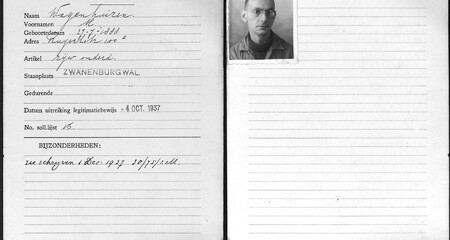 Naam Wagenhuizen
Voornamen M
Geboortedatum 27-7-1888
Adres
Artikel rijw. onderd.
Staanplaats ZWANENBURGWAL
Gedurende
Datum uitreiking legitimatiebewijs -4 OCT. 1937
No. soll.lijst 15
BIJZONDERHEDEN:
zie schrijven 1 Dec. 1937